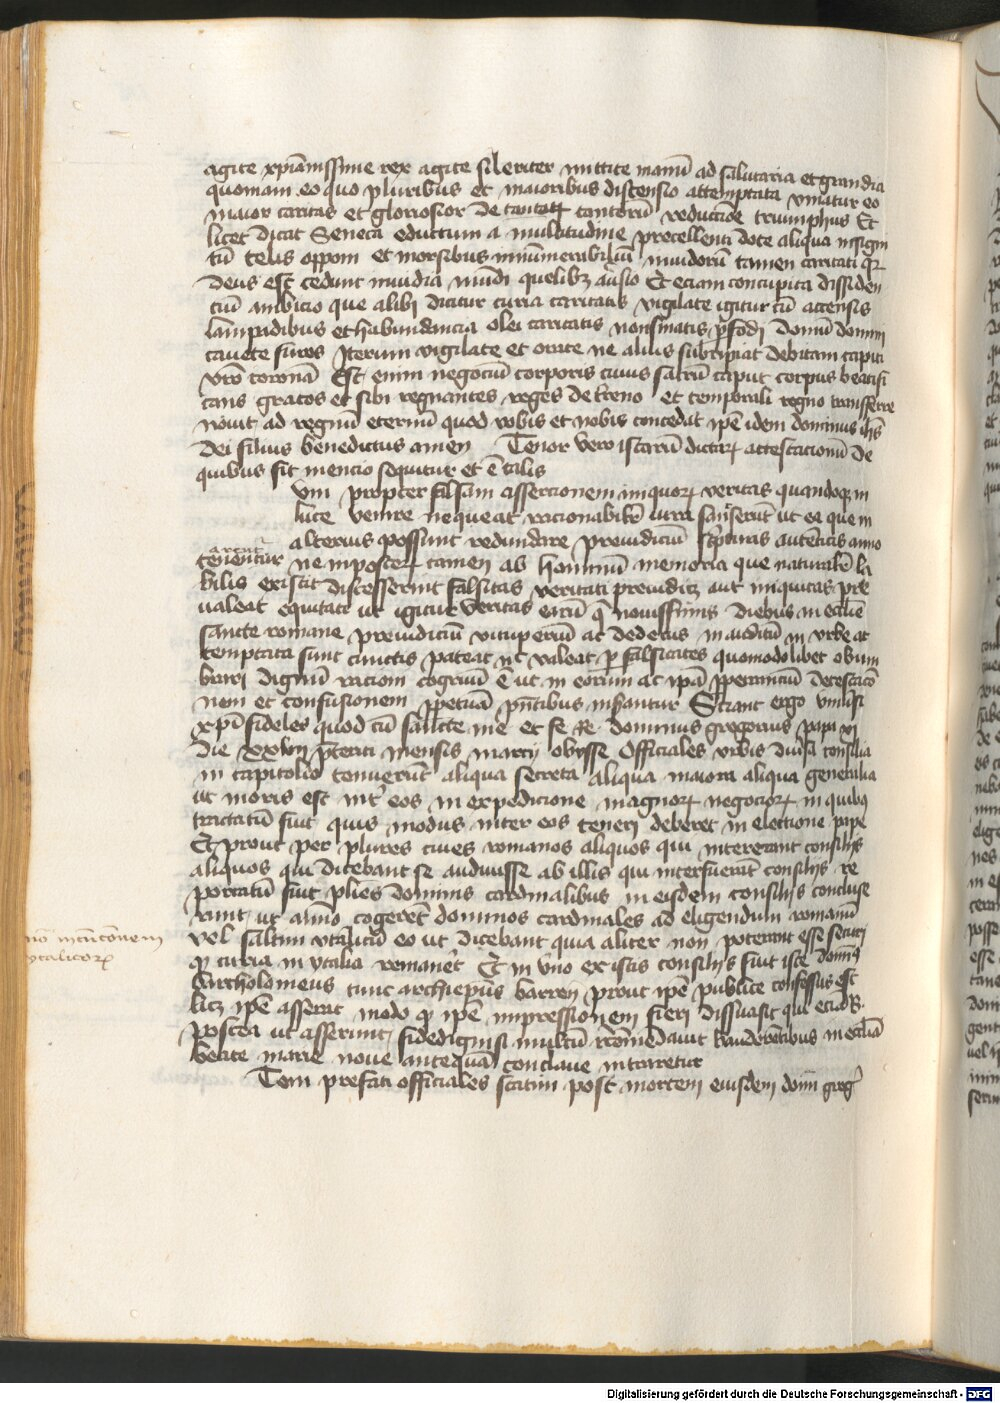 agite xp̄ianissime rex agite sileriter mittite manū ad salutaria et grandia
quoniam eo quo pluribus et maioribus discensio attemptata vniatur eo
maior caritas et gloriosior de tantaꝝ tantorū reductiōe triumphus Et
licet dicat Seneca eductum a multitudine precellenti dote aliqua insigni
tū telis opponi et morsibus innumerabiliū inuidorū tamen caritati que
deus est cedunt inuidia mūdi quelibꝫ ausio Et eciam concupita dissiden
ciū ambicio que alibi dicitur curia caritatis vigilate igitur cū accensis
lampadibus et habundancia olei caritatis nonsinatis ꝑfodi domū domini
cauete fures Iterum vigilate et orate ne alius subripiat debitam capiti
vr̄o coronā Est enim negociū corporis cuius sacrū caput corpus beatifi
cans gratos et sibi regnantes reges de treno et temporali regno transferre
nouit ad regnū eternū quod vobis et nobis concedat ip̄e idem dominus ih̄s
dei filius benedictus amen Tenor vero istarū dictaꝝ attestacionū de
quibus fit mencio sequitur et ē talis
vm propter falsam assercionem iniquoꝝ veritas quandoqꝫ in
luce venire nequeat racionabilit̄ iurra sanxerūt ut ea que in
alterius possunt redundare preiudiciū scripturis autenticis anno
tarent᷑
tenentur ne in posteꝝ tamen ab hominū memoria que naturalit̄ la
bilis existit discesserint falsitas veritati preiudicꝫ aut iniquitas pre
ualeat equitati ut igitur veritas earū q̄ nouissimis diebus in ecclīe
sancte romane preiudiciū vituperiū ac dedecus in auditū in vrbe at
temptata sunt cunctis pateat nec valeat ꝑ falsitates quomodolibet obum
brari dignū racioni cogruū ē ut in eorum ac ipā ꝑperantiū detestacō
nem et confusionem ꝑpetuā pn̄tibus inserantur Sciant ergo vniuersi
xp̄i fideles quod cū sancte me et fe Re dominus gregorius papa xj
die xxvij preteriti mensis marcij obijsse Officiales vrbis diuersa consilia
in capitolio tenuerūt aliqua secreta aliqua maiora aliqua generalia
ut moris est int̄ eos in expedicione magnoꝝ negocioꝝ in quibus
tractatū fuit quis modus inter eos teneri deberet in electione pape
Et prout per plures ciues romanos aliquos qui intererant consilijs
aliquos qui dicebant se audiuisse ab illis qui interfuerāt consilijs re
portatū fuit plīes dominis cardinalibus in eisdem consilijs concluse
runt ut aīmo cogerēt dominos cardinales ad eligendum romanū
vel saltim ytalicū eo ut dicebant quia aliter non poterant esse securi
ꝙ curia in ytalia remanēt Et in vno ex istis consilijs fuit iste domin⁹
bartholomeus tunc archiepūs barren prout ip̄e publice confessus est
licꝫ ip̄e asserat modo ꝙ ip̄e impressionem fieri dissuasit qui eciā R.
postea ut asserunt fidedigni si multū recōmēdauit bandererībus in ecclīa
beate marie noue antequā conclaue intraretur
Tem prefati officiales statim post mortem eiusdem domi greḡ
no intencōnem
ytalicoꝝ
Digitalisierung gefördert durch die Deutsche Forschungsgemeinschaft - DFG